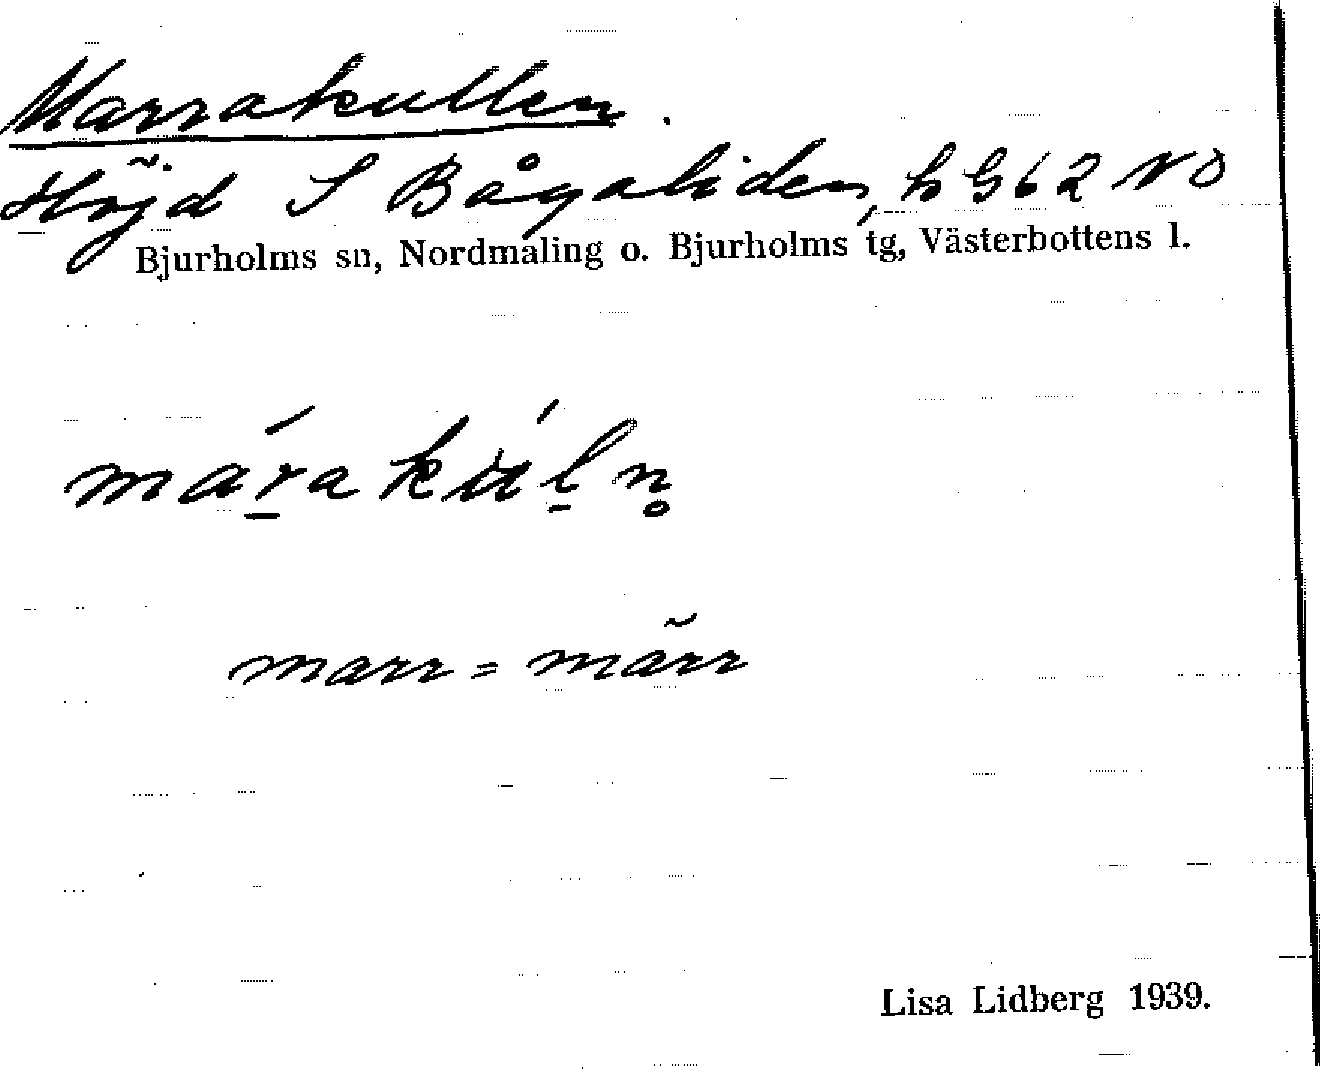 Marrakullen.
Höjd S Bågaliden, h G 62 NO
Bjurholms sn, Nordmaling o. Bjurholms tg, Västerbottens l.
márakúln̥
marr = märr
Lisa Lidberg 1939.